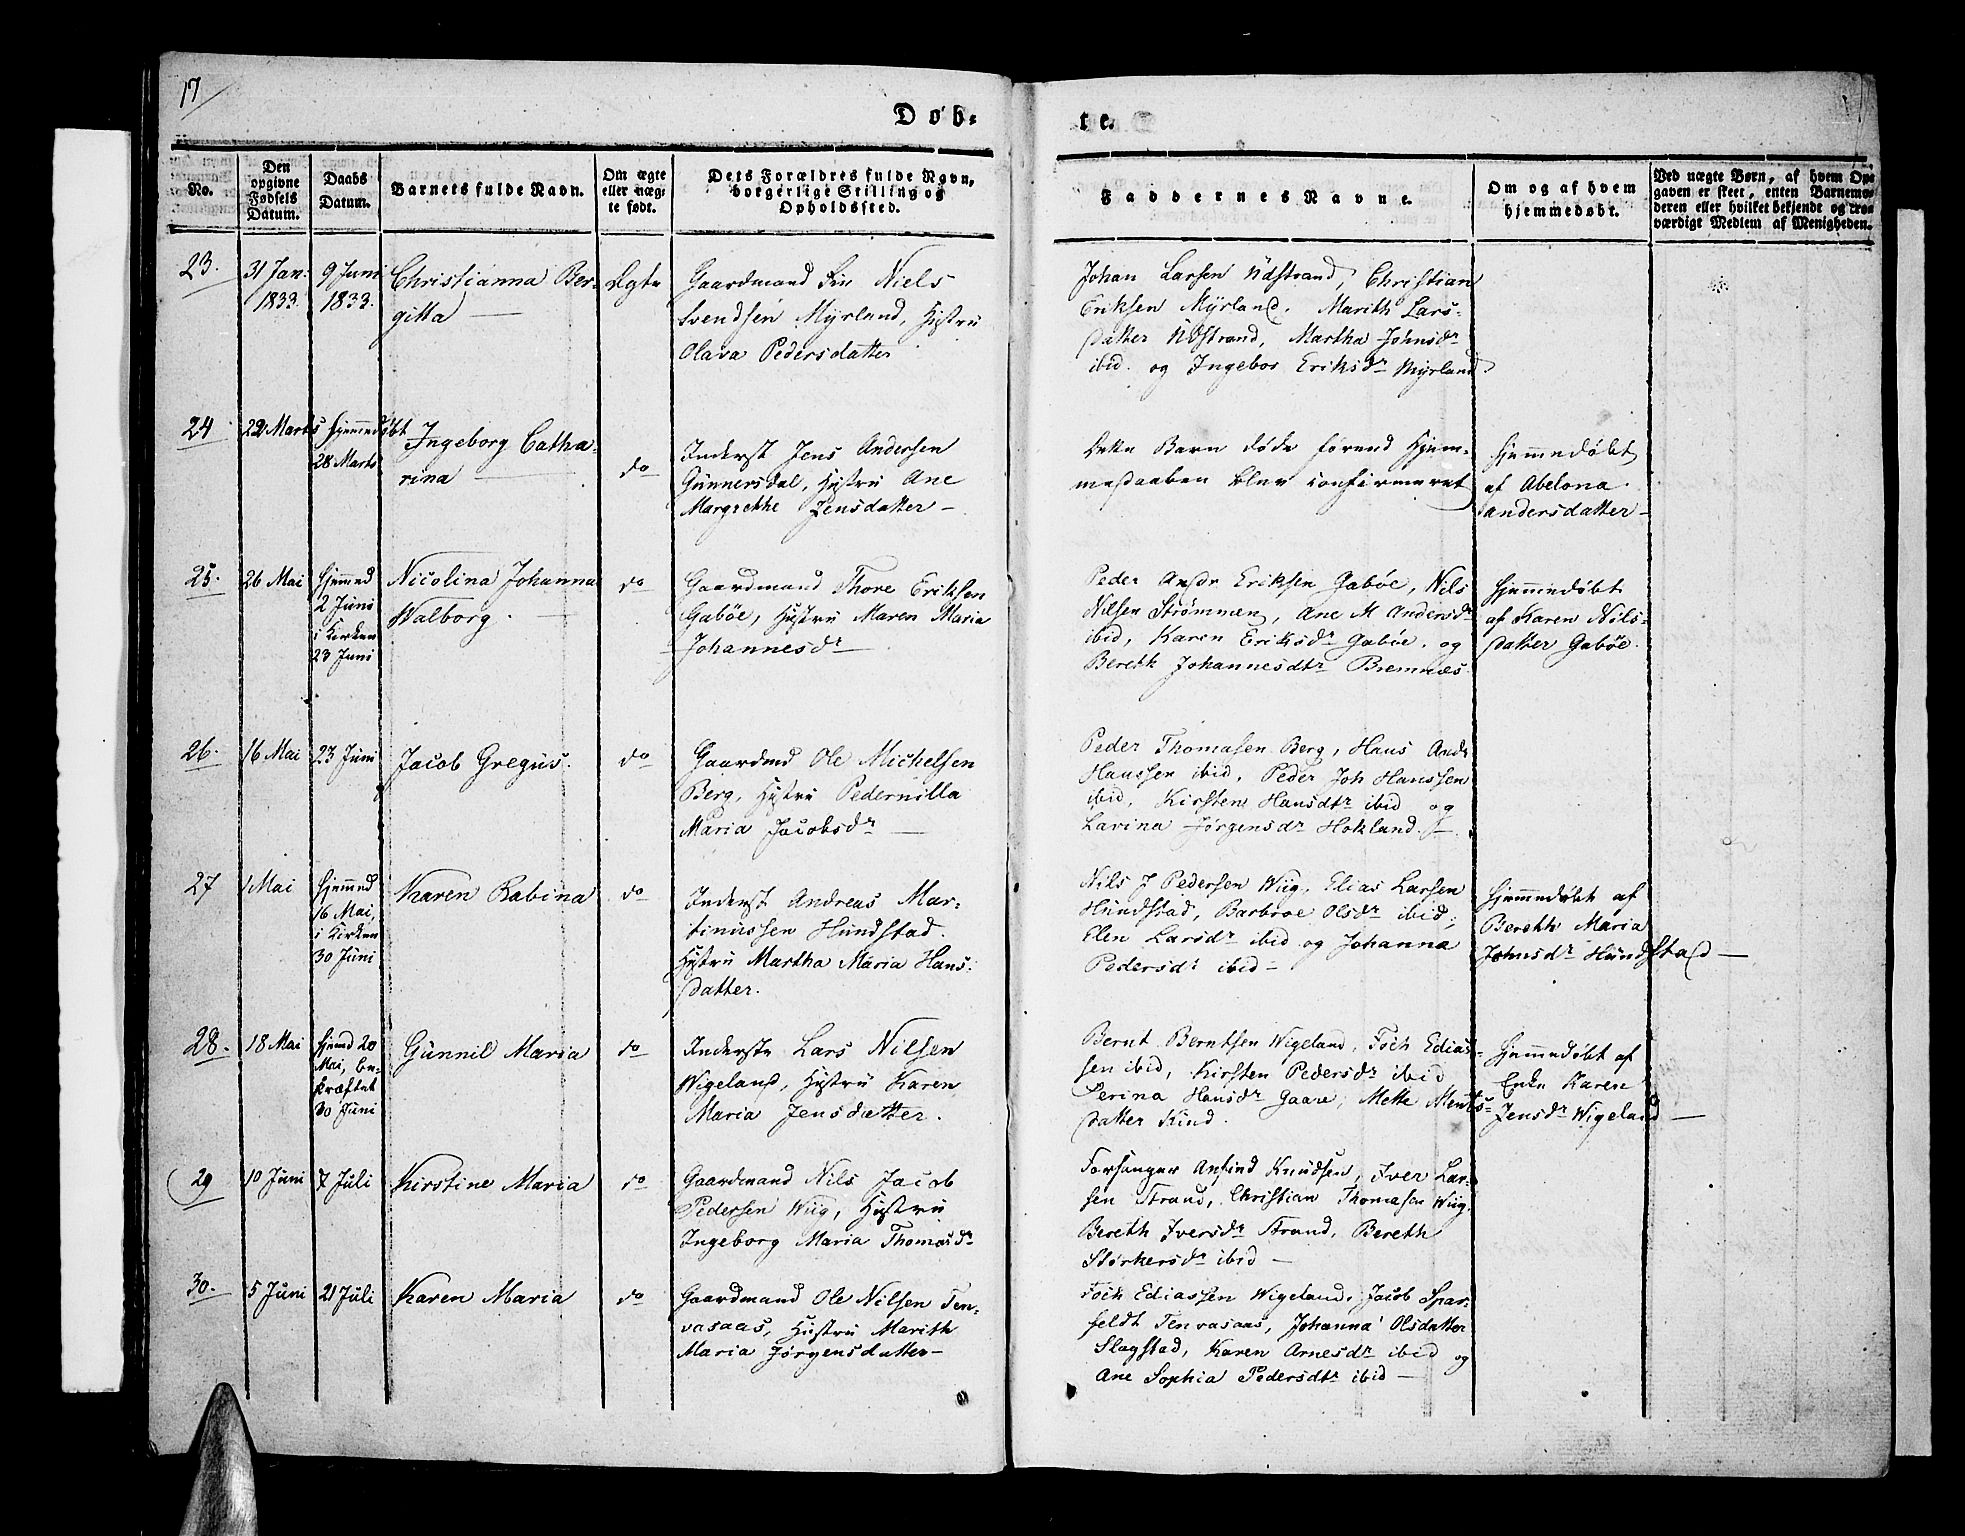 17
Døb-
te.
No.
Den opgivne Fødsels Datum.
Daabs Datum.
Barnets fulde Navn.
Om ægte eller uæg- te født.
Dets Forældres fulde Navn, borgerlige Stilling og Opholdssted.
Faddernes Navne.
Om og af hvem hjemmedøbt.
Ved uægte Børn, af hvem Op- gaven er skeet, enten Barnemo- deren eller hvilket bekjendt og tro- værdigt Medlem af Menigheden.
23.
31 Jan:
1833.
9 Juni
1833.
Christianna Ber-
gitta
Ægte
Gaardmand Niels
Svendsen Myrland, Hustru
Olava Pedersdatter
Johan Larsen Udstrand, Christian
Eriksen Myrland. Marith Lars-
datter Udstrand, Martha Johnsdr
ibid. og Ingebor Eriksdr Myrland
24
22 Marts
Hjemmedøbt
28 Marts
Ingeborg Catha-
rina
do
Inderst Jens Andersen
Gunnersdal, Hustru Ane
Margrethe Jensdatter
Dette Barn døde førend Hjem-
medaaben blev confirmeret
Hjemmedøbt
af Abelona
Andersdatter
25.
26 Mai
Hjemmed
2 Juni
i Kirken
23 Juni
Nicolina Johanna
Walborg.
do
Gaardmand Thore Eriksen
Gabøe, Hustru Maren Maria
Johannesdr
Peder Andr Eriksen Gabøe, Nils
Nilsen Strømmen, Ane M Andersdr
ibid, Karen Eriksdr Gabøe. og
Bereth Johannesdtr Bremnæs
Hjemmedøbt
af Karen Nils-
datter Gabøe.
26.
16 Mai
23 Juni
Jacob Gregus.
do
Gaardmd Ole Michelsen
Berg, Hustru Pedernilla
Maria Jacobsdr
Peder Thomasen Berg, Hans Andr
Hanssen ibid, Peder Joh Hanssen
ibid, Kirsten Hansdtr ibid og
Lavina Jørgensdr Hokland.
27
1 Mai
Hjemmed
16 Mai,
i Kirken
30 Juni
Karen Rabina
do
Inderst Andreas Mar-
tinussen Hundstad.
Hustru Martha Maria Hans-
datter.
Nils J Pedersen Wiig, Elias Larsen
Hundstad, Barbroe Olsdr ibid,
Elen Larsdr ibid og Johanna
Pedersdr ibid
Hjemmedøbt af
Bereth Maria
Johnsdr Hundstad
28.
18 Mai
Hjemd 20
Mai, be-
kræftet
30 Juni
Gunnil Maria
do
Inderste Lars Nilsen
Wigeland, Hustru Karen
Maria Jensdatter.
Bernt Berntsen Wigeland, Foch Edias-
sen ibid, Kirsten Pedersdr ibid
Serina Hansdr Gaare, Mette Ments-
datter Kind.
Hjemmedøbt af
Enke Karen
Jensdr Wigeland
29
10 Juni
7 Juli
Kirstine Maria
do
Gaardmand Nils Jacob
Pedersen Wiig, Hustru
Ingeborg Maria Thomasdr
Forsanger Anfind Knudsen, Iver Lar-
sen Strand, Christian Thomasen Wiig
Bereth Iversdr Strand, Bereth
Størkersdr ibid
30.
5 Juni
21 Juli
Karen Maria
do
Gaardmand Ole Nilsen Ten-
vasaas, Hustru Marith
Maria Jørgensdatter
Foch Ediassen Wigeland, Jacob Spar-
feldt Tenvasaas, Johanna Olsdatter
Slagstad, Karen Arnesdr ibid og
Ane Sophia Pedersdtr ibid